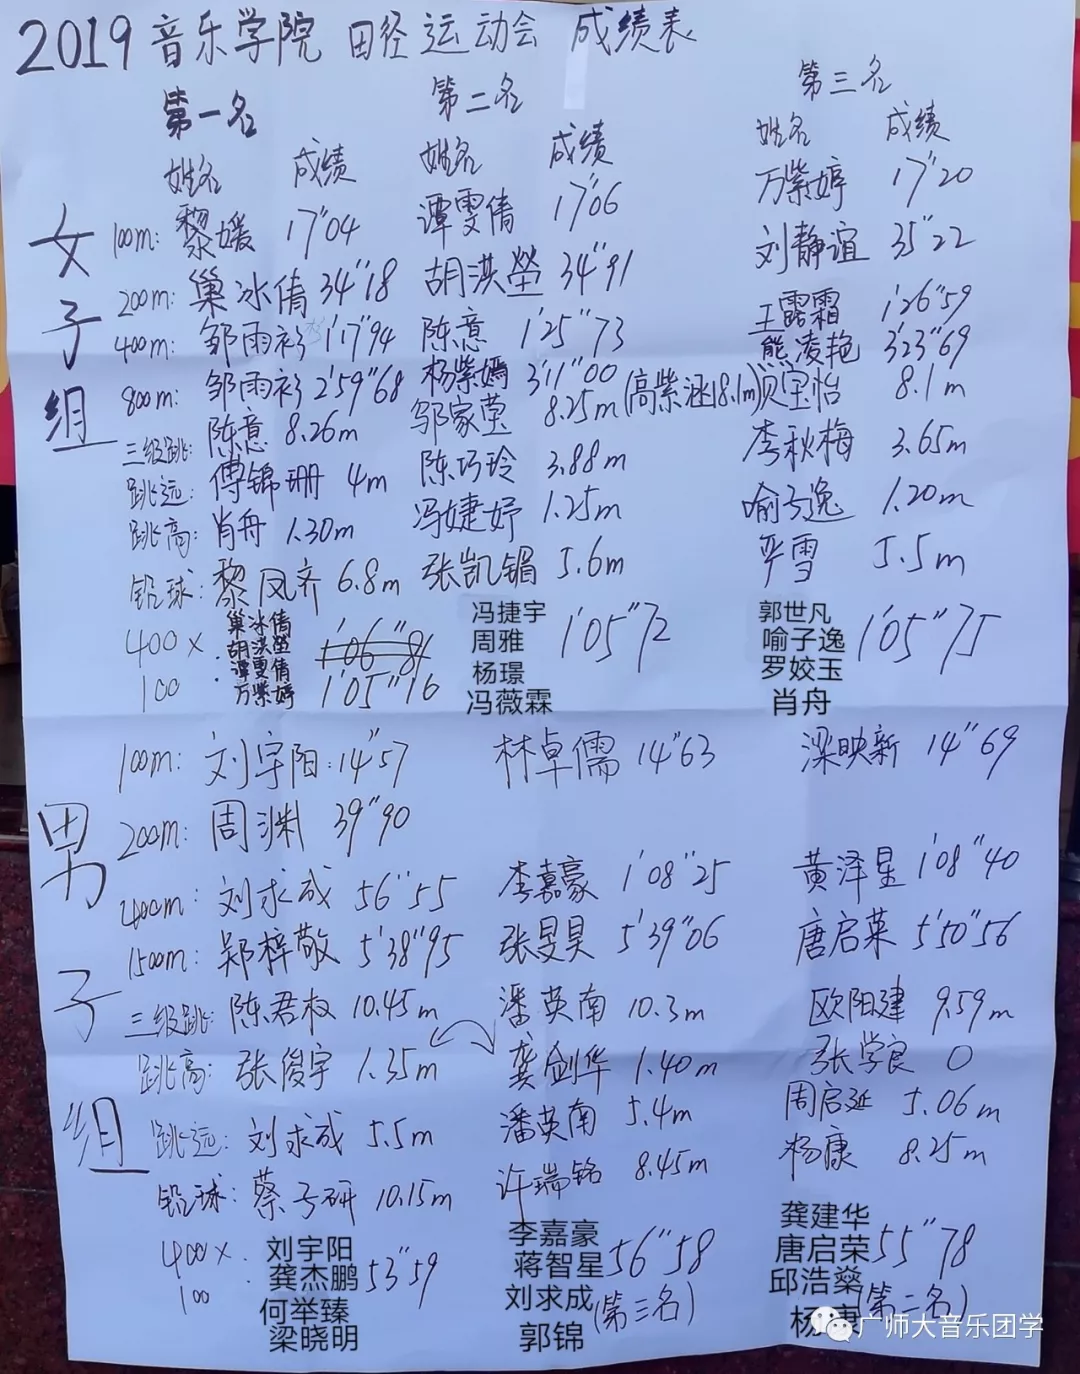 2019 音乐学院 田径运动会 成绩表
第一名 第二名 第三名
姓名 成绩 姓名 成绩 姓名 成绩
女子组
100m: 黎媛 17"04 谭雯倩 17"06 万紫婷 17"20
200m: 巢冰倩 34"18 胡淇莹 34"91 刘静谊 35"22
400m: 邹雨衫 1'17"94 陈意 1'25"73 王露霜 1'26"59
800m: 邹雨衫 2'59"68 杨紫嫣 3'11"00 熊凌艳 3'23"69
三级跳: 陈意 8.26m 邬家莹 8.25m (高紫涵 8.1m) 贝宝怡 8.1m
跳远: 傅锦珊 4m 陈巧玲 3.88m 李秋梅 3.65m
跳高: 肖舟 1.30m 冯婕妤 1.25m 喻子逸 1.20m
铅球: 黎凤齐 6.8m 张凯镅 5.6m 严雪 5.5m
400 x 100:
巢冰倩 胡淇莹 谭雯倩 万紫婷 1'06"81 1'05"16
冯捷宇 周雅 杨璟 冯薇霖 1'05"72
郭世凡 喻子逸 罗姣玉 肖舟 1'05"75
男子组
100m: 刘宇阳: 14"57 林卓儒 14"63 梁映新 14"69
200m: 周渊 39"90
400m: 刘求成 56"55 李嘉豪 1'08"25 黄泽星 1'08"40
1500m: 郑梓敬 5'38"95 张旻昊 5'39"06 唐启荣 5'50"56
三级跳: 陈君权 10.45m 潘英南 10.3m 欧阳建 9.59m
跳高: 张俊宇 1.35m 龚剑华 1.40m 张学良 0
跳远: 刘求成 5.5m 潘英南 5.4m 周启延 5.06m
铅球: 蔡子研 10.15m 许瑞铭 8.45m 杨康 8.25m
400 x 100:
刘宇阳 龚杰鹏 何举臻 梁晓明 53"59
李嘉豪 蒋智星 刘求成 郭锦 56"58 (第三名)
龚建华 唐启荣 邱浩燊 杨康 55"78 (第二名)
广师大音乐团学